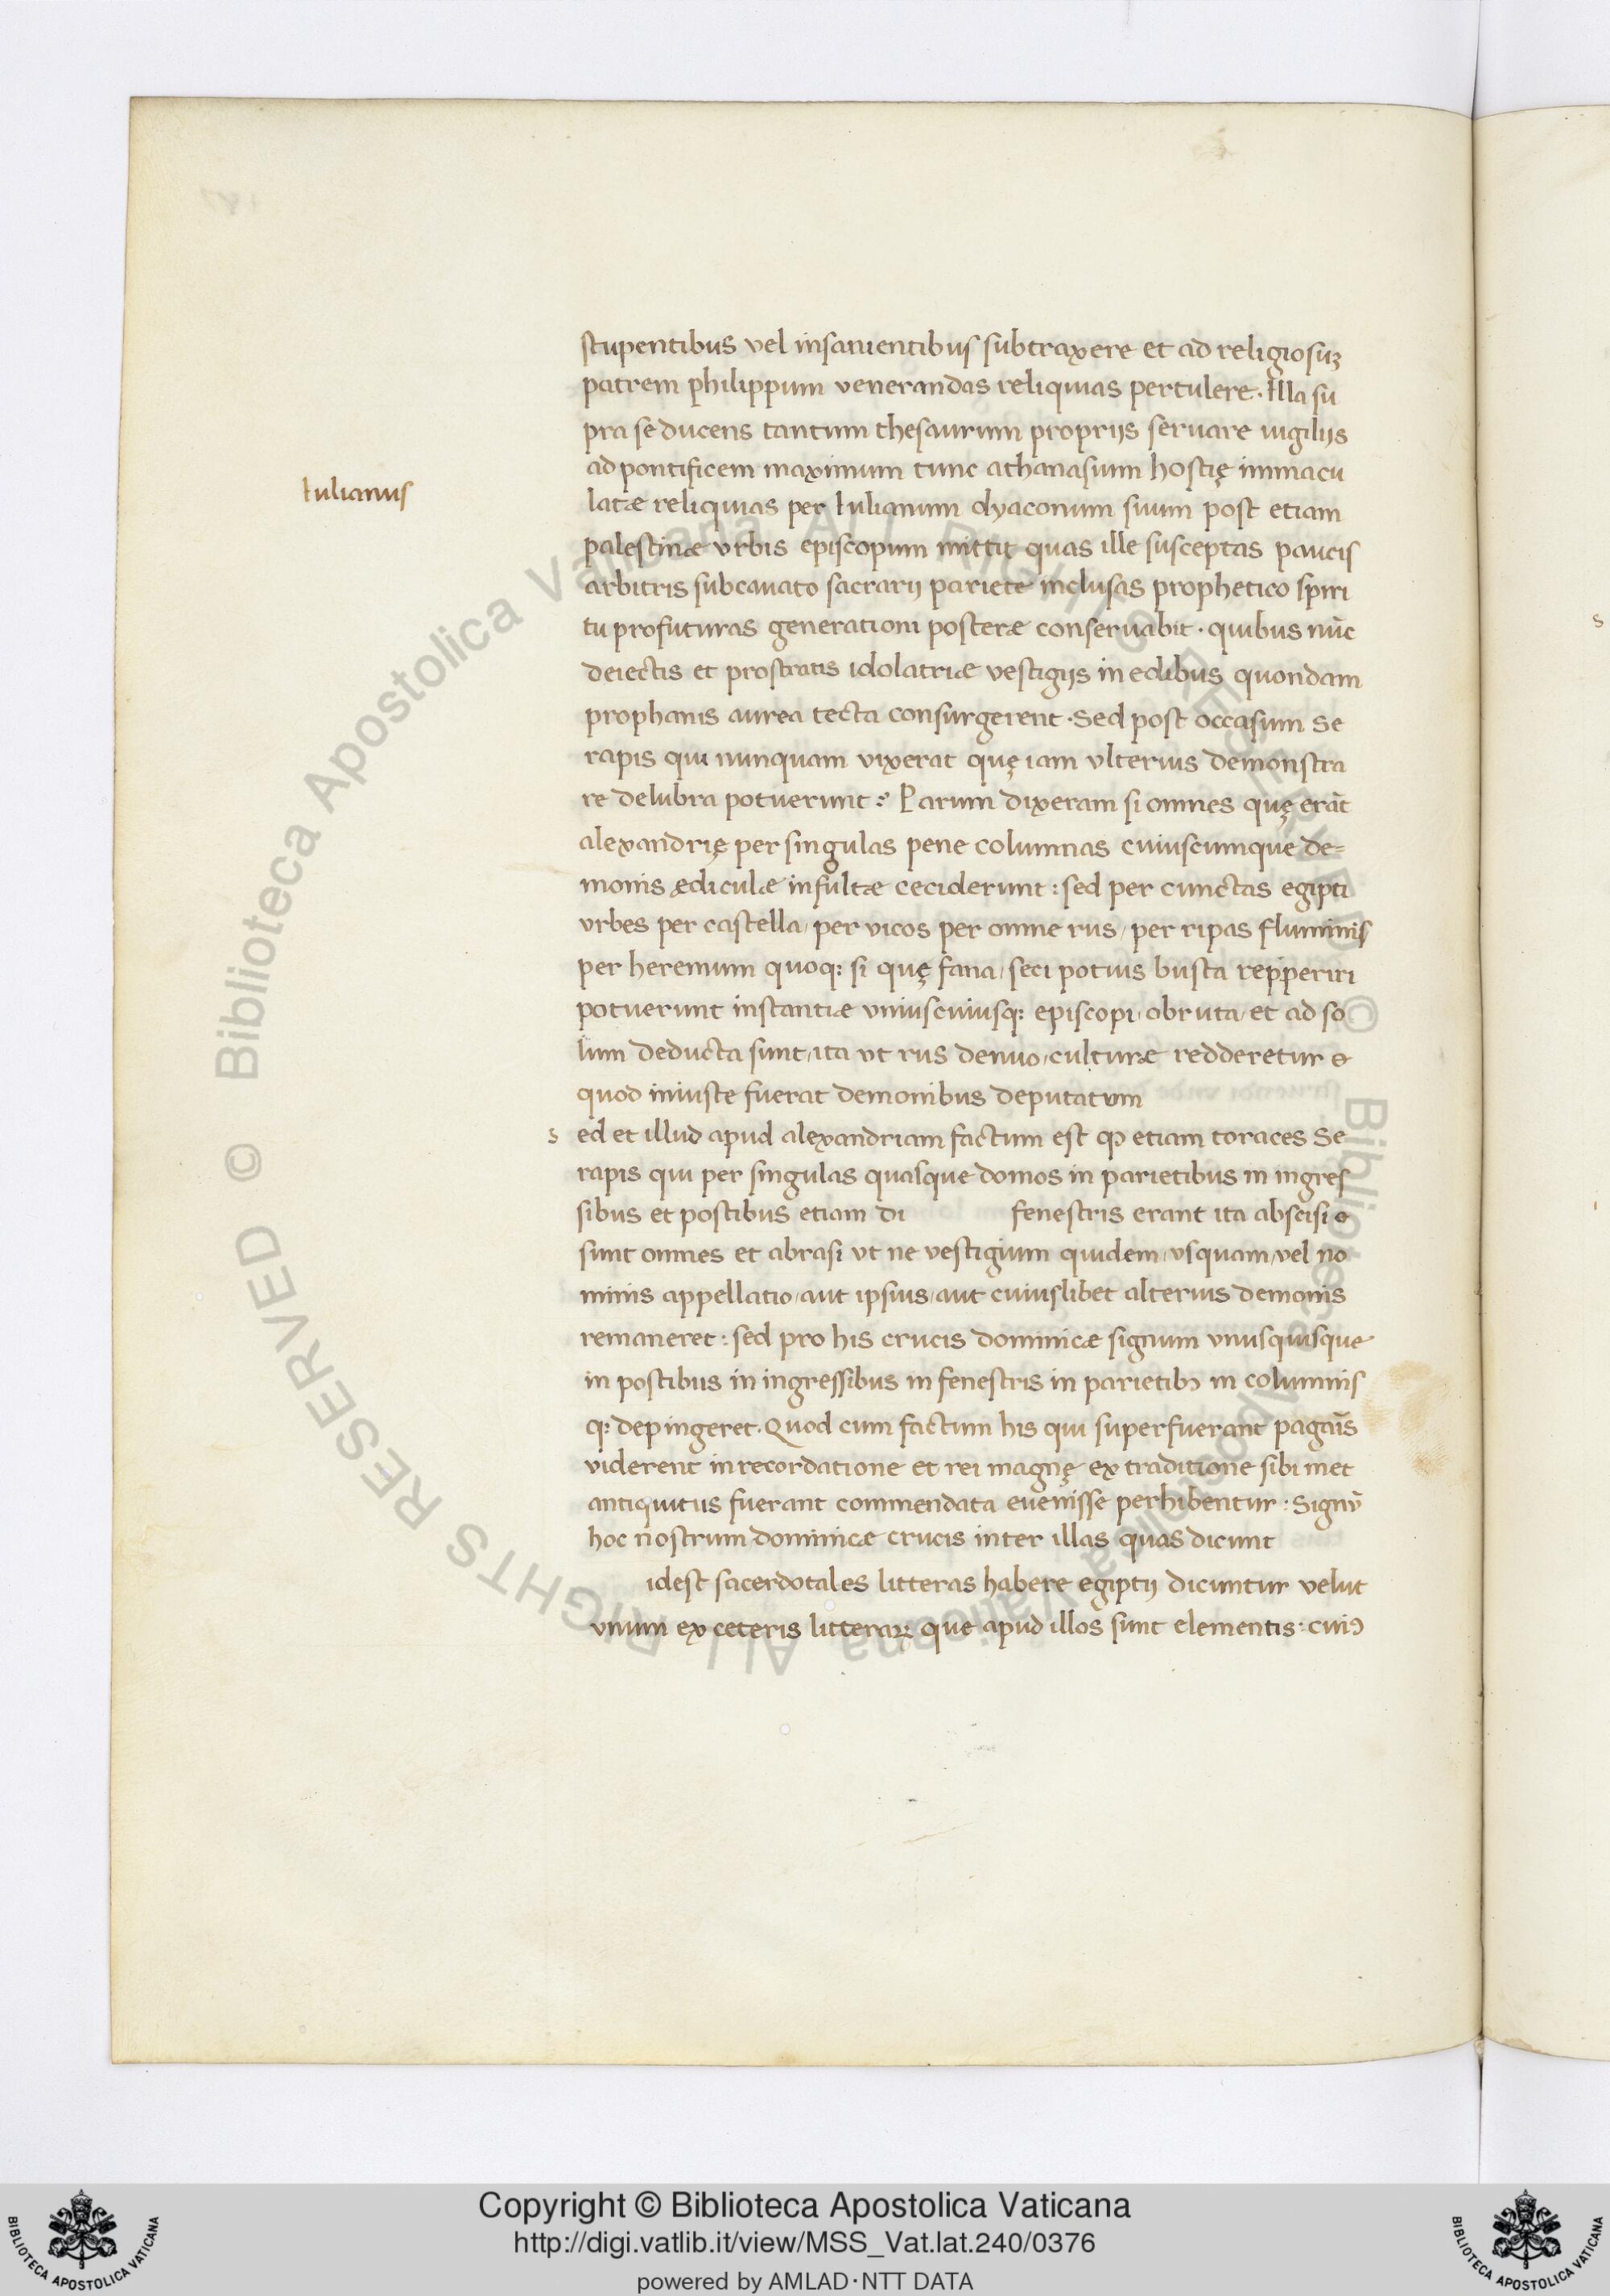 stupentibus vel insanientibus subtraxere et ad religiosuꝫ
patrem philippum venerandas reliquias pertulere. Illa su
pra se ducens tantum thesaurum proprijs seruare uigilijs
ad pontificem maximum tunc athanasium hostię immacu
Iulianus
latæ reliquias per Iulianum dyaconum suum post etiam
palestinæ vrbis episcopum mittit quas ille susceptas paucis
arbitris subcauato sacrarij pariete inclusas prophetico spiri
tu profuturas generationi posteræ conseruabit · quibus nūc
deiectis et prostratis idolatriæ vestigijs in edibus quondam
prophanis aurea tecta consurgerent · Sed post occasum Se
rapis qui nunquam vixerat quę iam vlterius demonstra
re delubra potuerunt ? Parum dixeram si omnes quę erāt
alexandrię per singulas pene columnas cuiuscumque de=
monis ædiculæ insultæ ceciderunt : sed per cunctas egipti
vrbes per castella / per vicos per omne rus / per ripas fluminis
per heremum quoqꝫ si quę fana / seci potius busta repperiri
potuerunt instantiæ vniuscuiusqꝫ episcopi / obruta / et ad so
lum deducta sunt / ita vt rus denuo / culturæ redderetur &
quod iniuste fuerat demonibus deputatum
s ed et illud apud alexandriam factum est ꝙ etiam toraces Se
rapis qui per singulas quasque domos in parietibus in ingres
sibus et postibus etiam di fenestris erant ita abscisi &
sunt omnes et abrasi vt ne vestigium quidem / vsquam / vel no
minis appellatio / aut ipsius / aut cuiuslibet alterius demonis
remaneret : sed pro his crucis dominicæ signum vnusquisque
in postibus in ingressibus in fenestris in parietibꝰ in columnis
qꝫ depingeret. Quod cum factum his qui superfuerant pagāis
viderent in recordatione et rei magnę ex traditione sibi met
antiquitus fuerant commendata euenisse perhibentur : Signū
hoc nostrum dominicæ crucis inter illas quas dicunt
idest sacerdotales litteras habere egiptij dicuntur velut
vnum ex ceteris litteraꝝ que apud illos sunt elementis : cuiꝰ
s
ı
© Biblioteca Apostolica Vaticana ALL RIGHTS RESERVED © Biblioteca Apostolica Vaticana ALL RIGHTS RESERVED
Copyright © Biblioteca Apostolica Vaticana
http://digi.vatlib.it/view/MSS_Vat.lat.240/0376
powered by AMLAD·NTT DATA
BIBLIOTECA APOSTOLICA VATICANA
BIBLIOTECA APOSTOLICA VATICANA